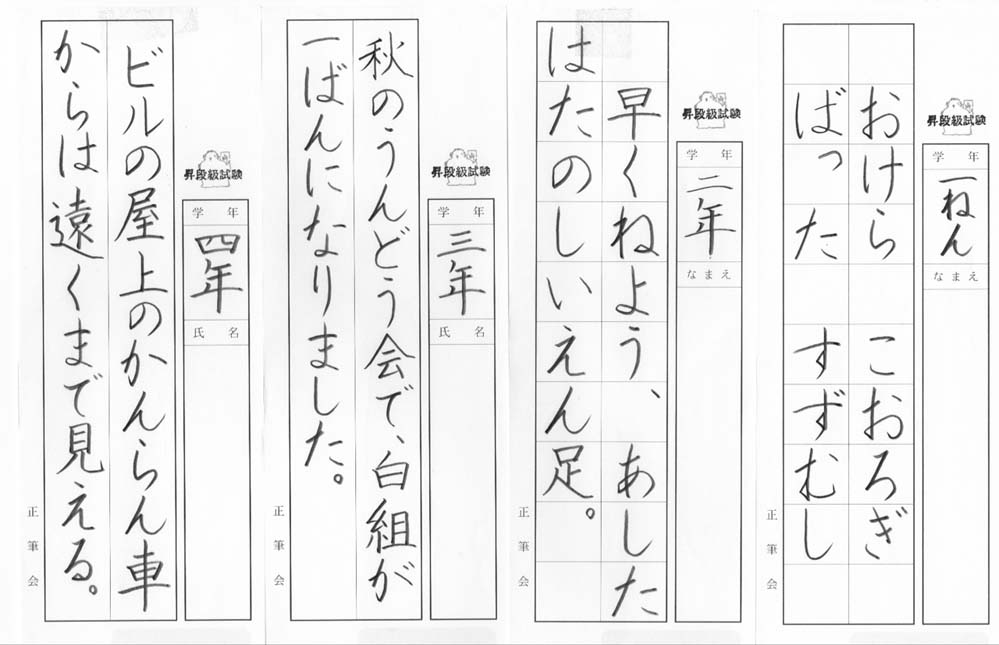 昇段級試験
学年
一ねん
なまえ
おけら　こおろぎ
ばった　すずむし
正筆会
昇段級試験
学年
二年
なまえ
早くねよう、あした
はたのしいえん足。
正筆会
昇段級試験
学年
三年
氏名
秋のうんどう会で、白組が
一ばんになりました。
正筆会
昇段級試験
学年
四年
氏名
ビルの屋上のかんらん車
からは遠くまで見える。
正筆会